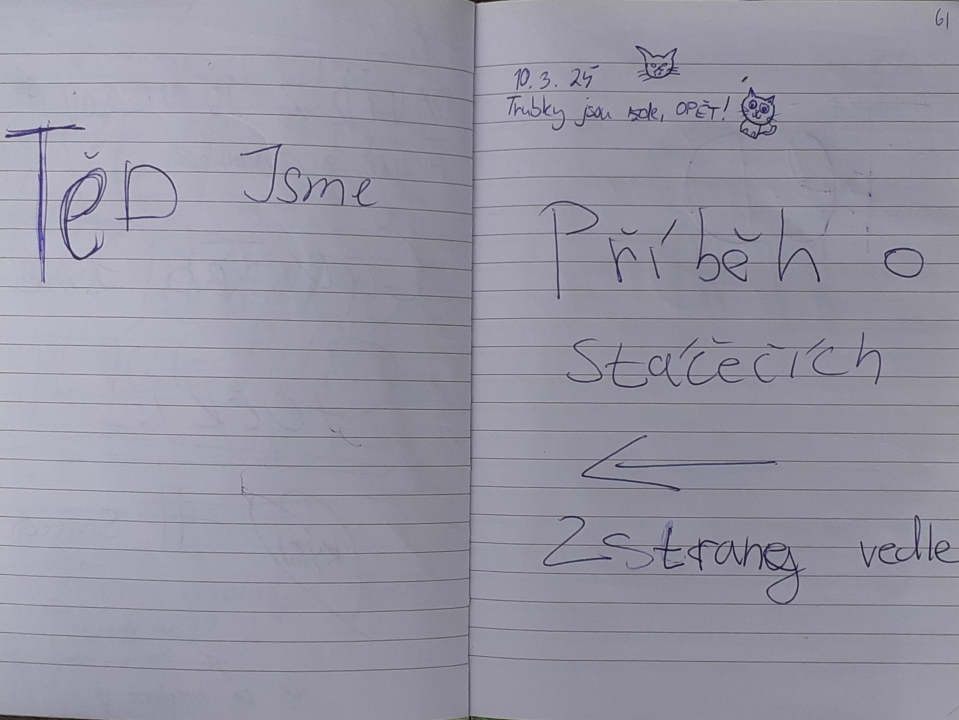 Těď Jsme
61
10.3.25
Trubky jsou zde, OPĚT!
Příběh o
Stáčečích
2 strany vedle